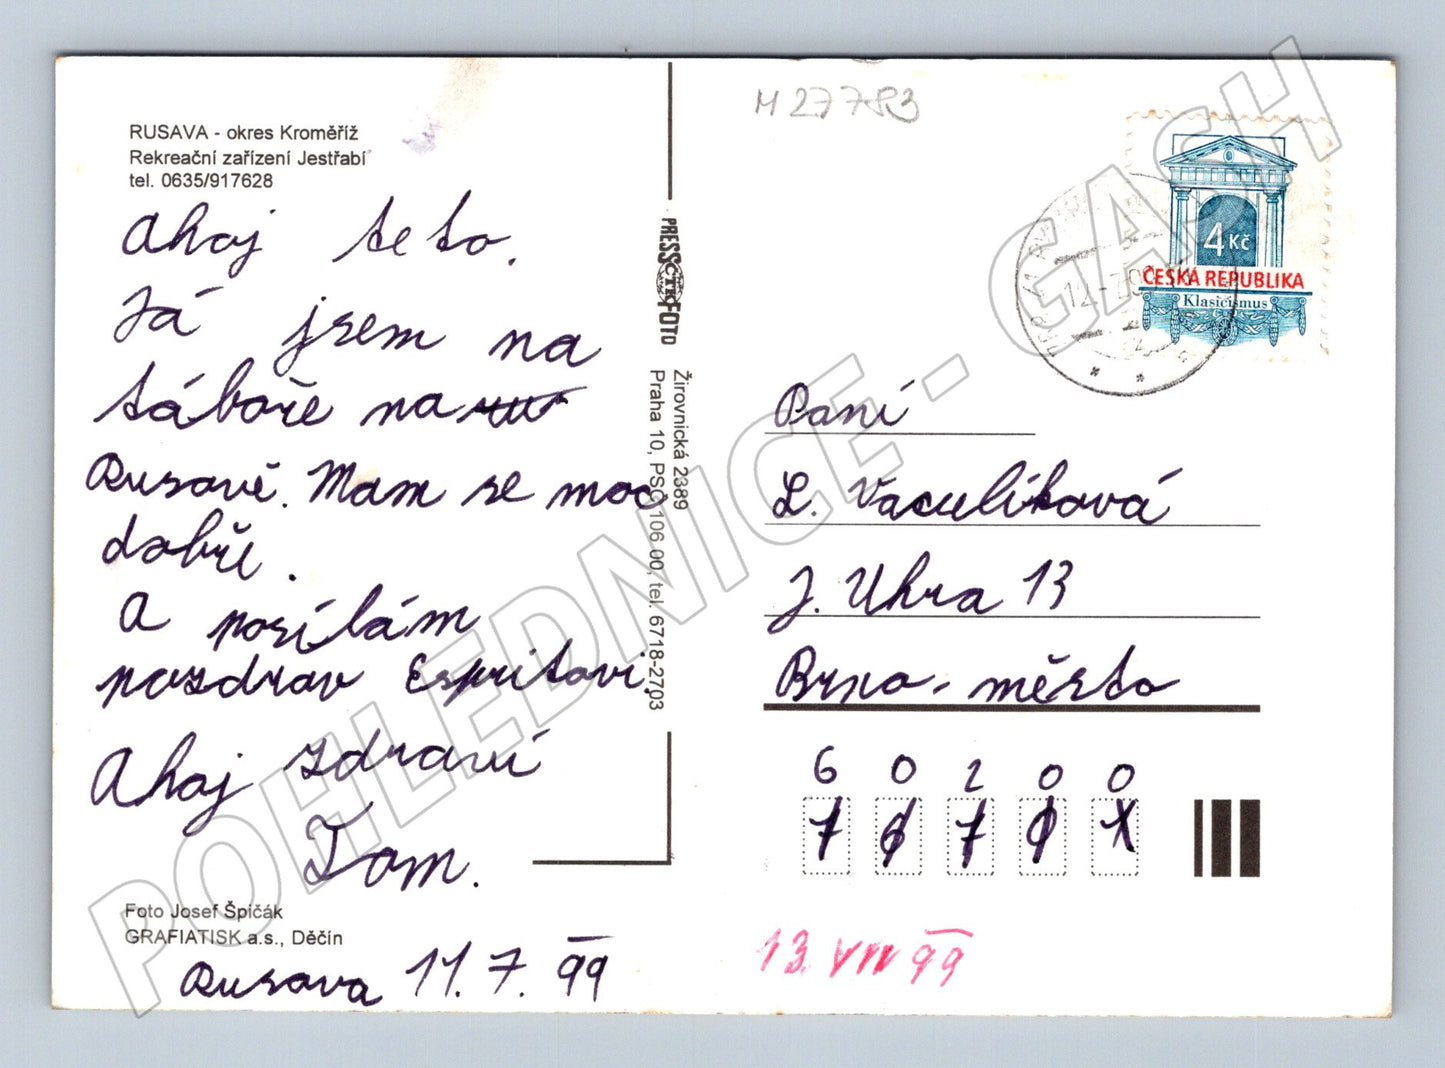 RUSAVA - okres Kroměříž
Rekreační zařízení Jestřabí
tel. 0635/917628
Ahoj teto.
Já jsem na
táboře na
Rusavě. Mam se moc
dobře.
A posílám
pozdrav Espritovi.
Ahoj zdraví
Tom.
Foto Josef Špičák
GRAFIATISK a.s., Děčín
Rusava 11. 7. 99
PRESS ČTK FOTO
Žirovnická 2389
Praha 10, PSČ 106 00, tel. 6718-2703
M 27783
4 Kč
ČESKÁ REPUBLIKA
Klasicismus
12.-7.99
Paní
L. Vaculíková
J. Uhra 13
Brno - město
6 0 2 0 0
13. VII 99
POHLEDNICE - GASH